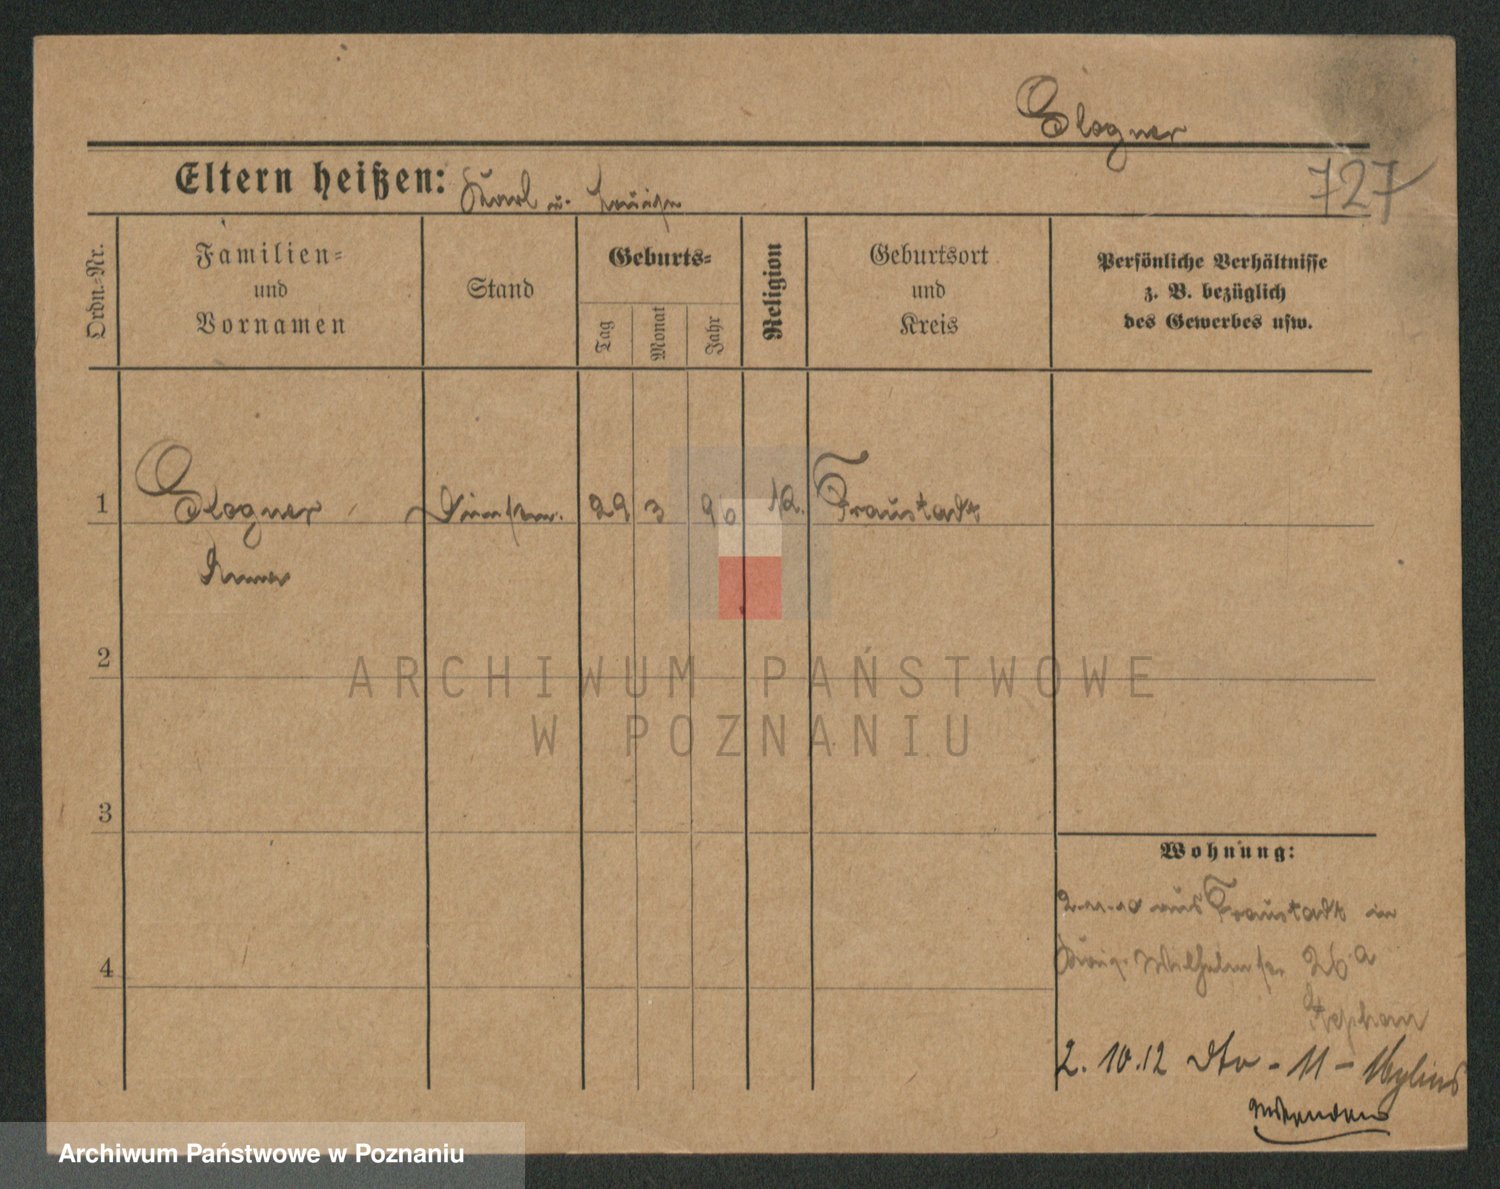 Glogner
727
Eltern heißen: Karl u.
Ordn.-Nr.
Familien=
und
Vornamen
Stand
Geburts=
Tag
Monat
Jahr
Religion
Geburtsort
und
Kreis
Persönliche Verhältnisse
z. B. bezüglich
des Gewerbes usw.
1 Glogner 29 3 90 Fraustadt
Anna
2
ARCHIWUM PAŃSTWOWE
W POZNANIU
3
Wohnung:
2.11.10 aus Fraustadt in
4 König-Wilhelmstr. 26a
Stephan
2.10.12 dto - 11 - Mylius
Archiwum Państwowe w Poznaniu